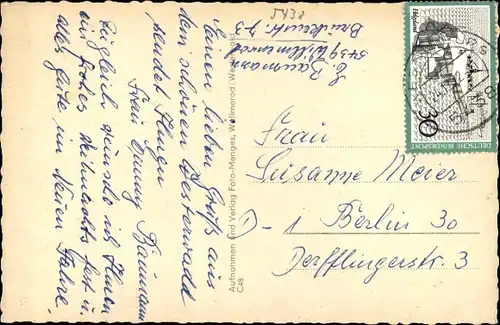 5431
E. Baumann
5439 Willmenrod
Brückenstr. 73
Einen lieben Gruß aus
dem schönen Westerwald
sendet Ihnen
Frau Emmy Baumann
Zugleich wünsche ich Ihnen
ein frohes Weihnachtsfest u.
alles gute im Neuen Jahre.
Aufnahmen und Verlag Foto-Menges, Wallmerod / Westerwald
C48
Helgoland
30
DEUTSCHE BUNDESPOST
Frau
Susanne Meier
D-1 Berlin 30
Derfflingerstr. 3